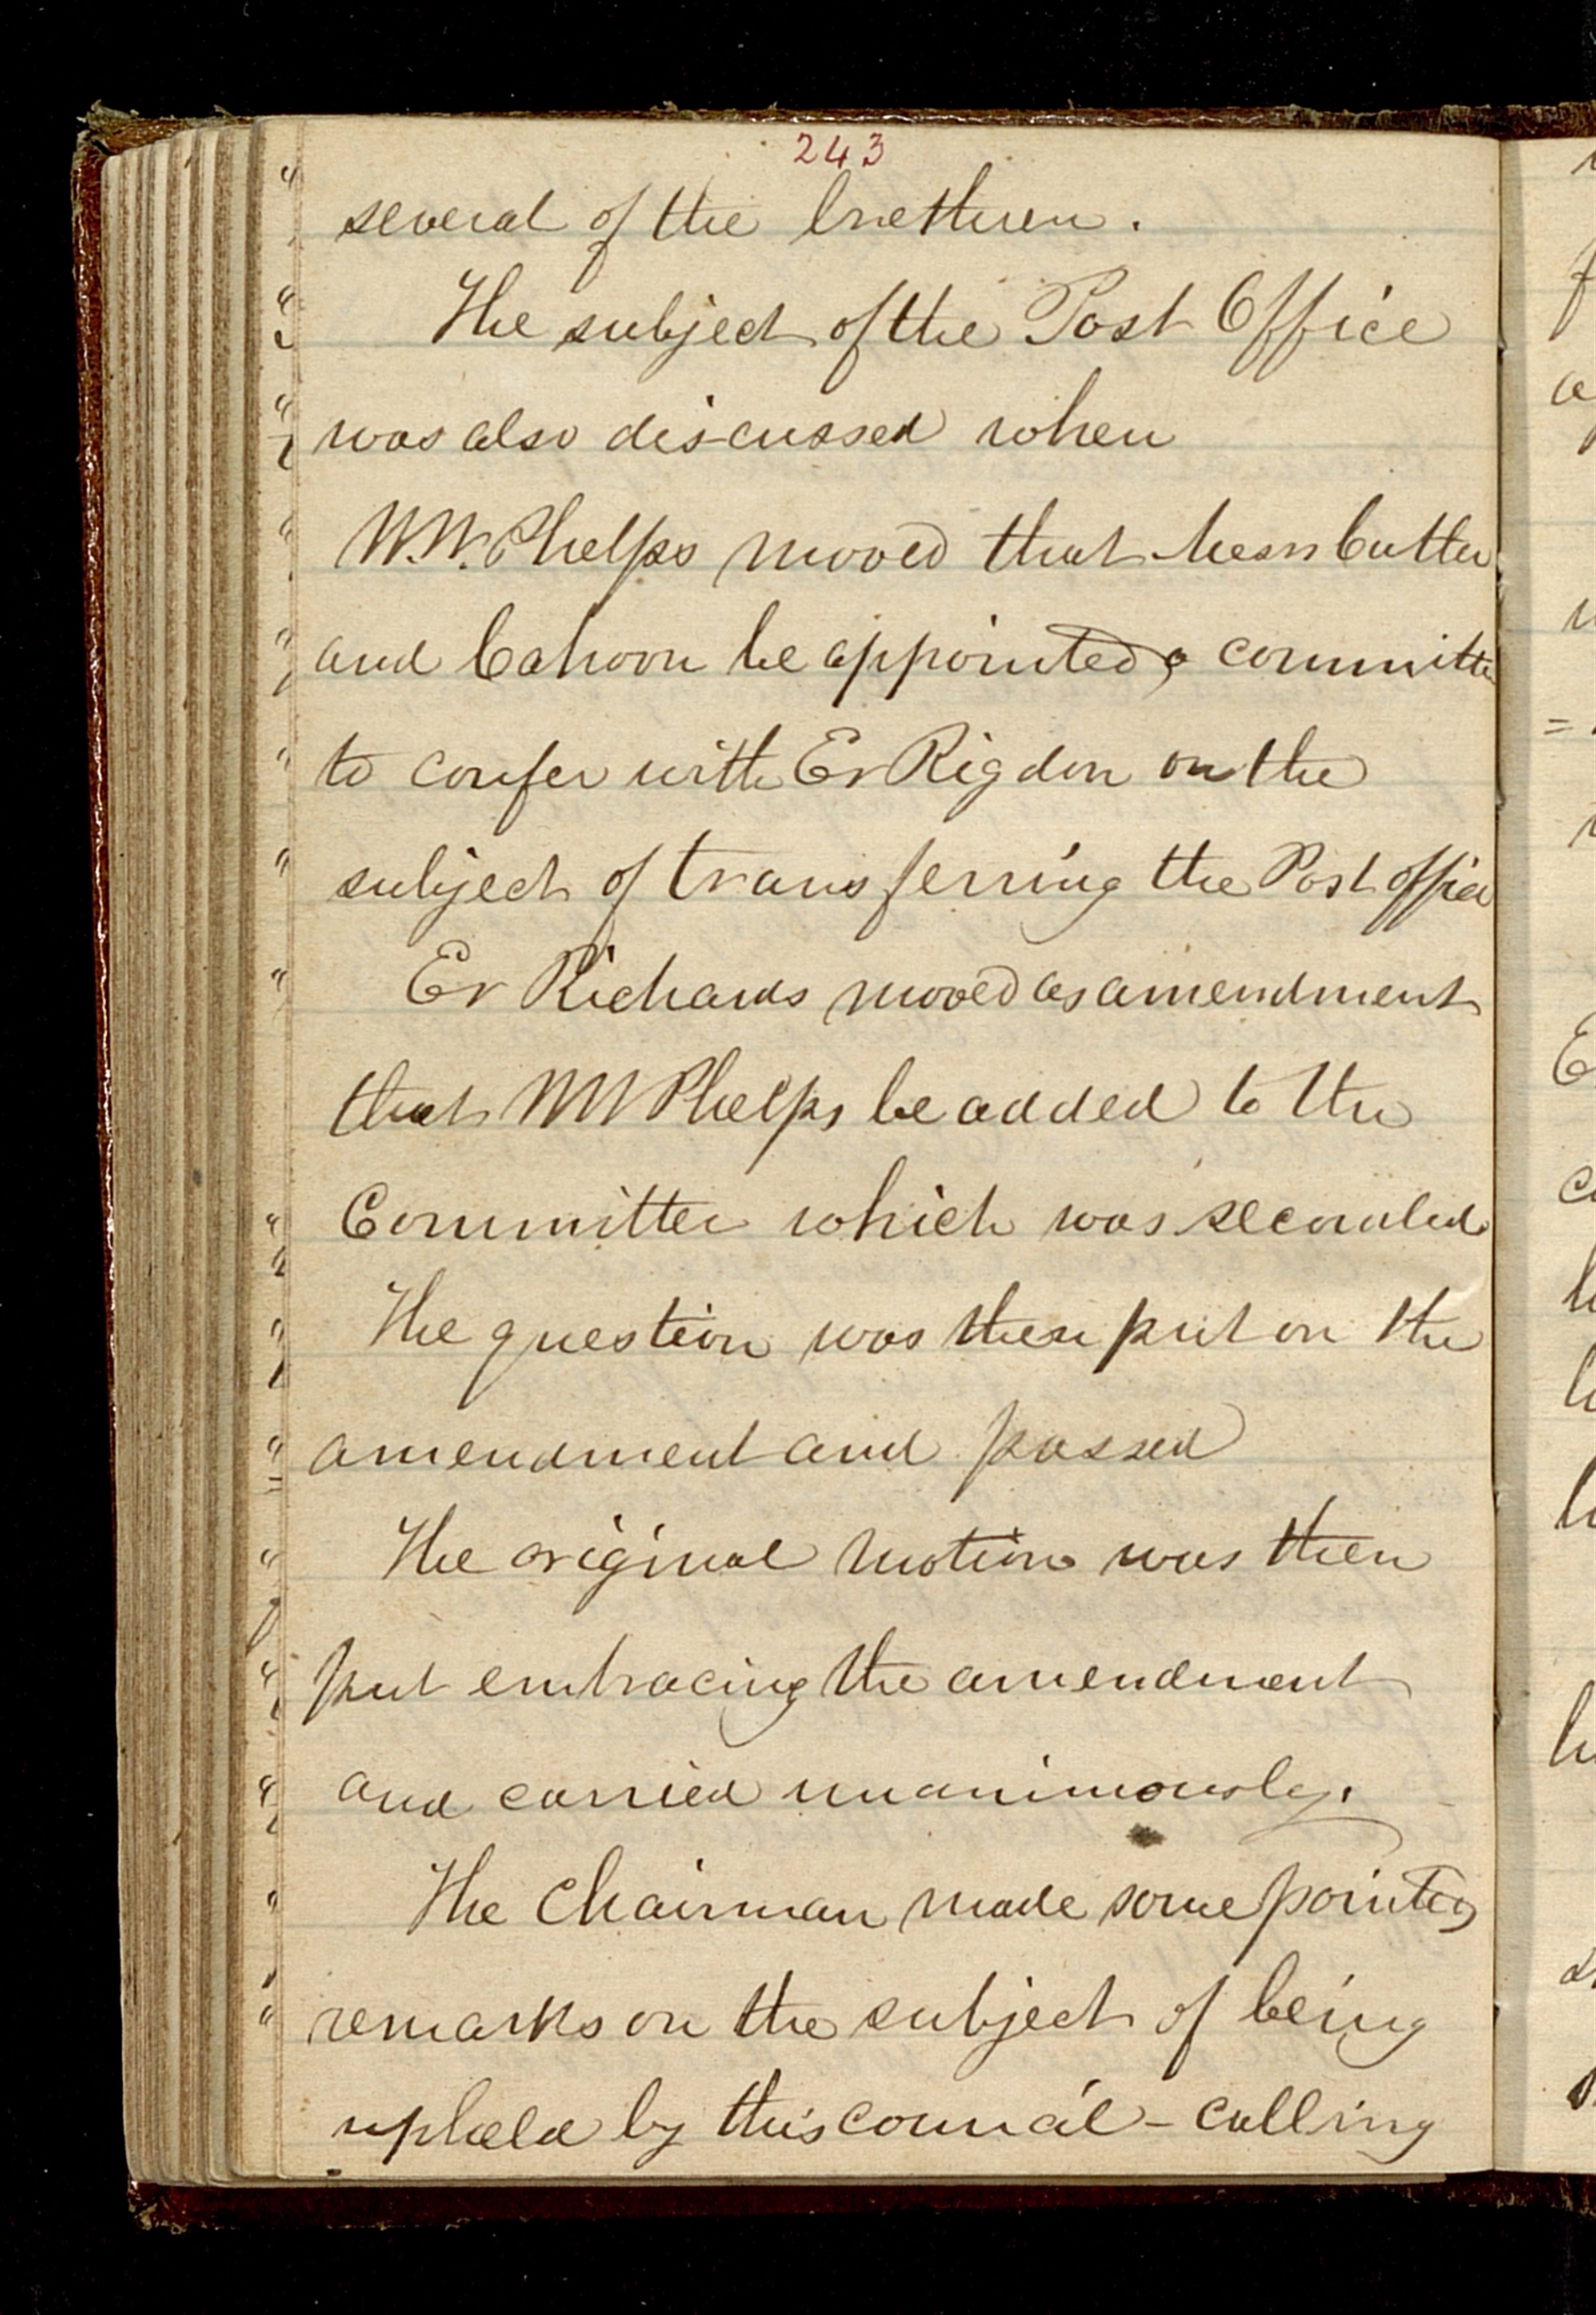 243
several of the brethren.
The subject of the Post Office
was also discussed when
W.W. Phelps moved that Messrs Cutler
and Cahoon be appointed a committee
to confer with Er Rigdon on the
subject of transferring the Post office
Er Richards moved as amendment
that W W Phelps be added to the
Committee which was seconded
The question was then put on the
amendment and passed
The original motion was then
put embracing the amendment
and carried unanimously.
The chairman made some pointed
remarks on the subject of being
upheld by this council - calling